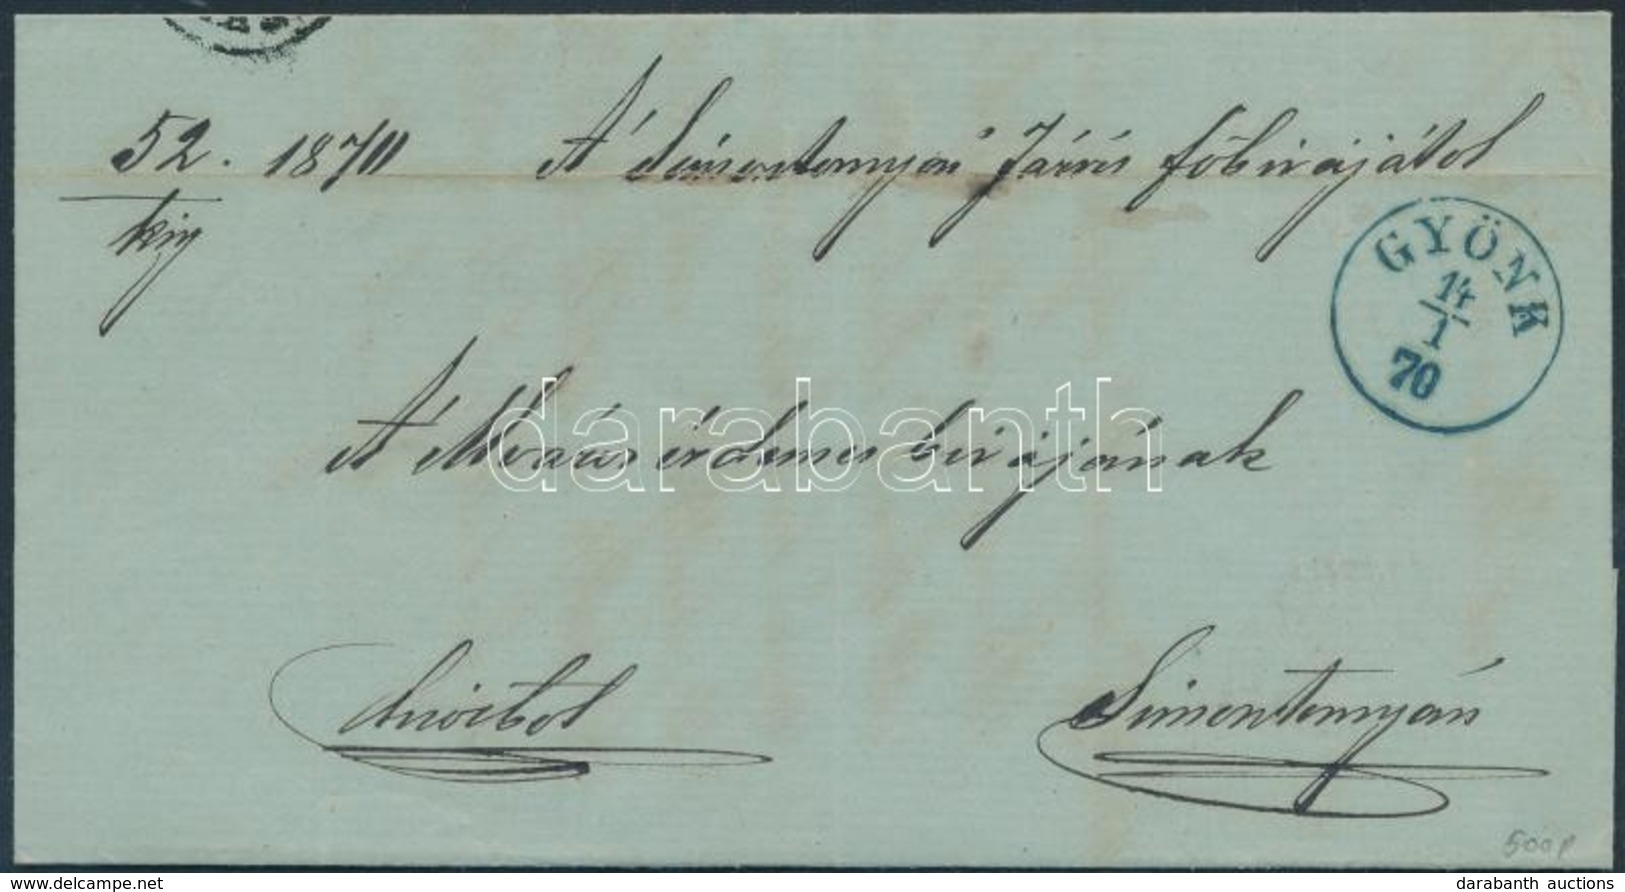 52. 1870 A Simontornyai Járás főbirájától
kig
GYÖNK
14
1
70
A Mváros érdemes birájának
darabanth
hivatalból
Simontornyán
500p
delcampe.net
darabanth auctions